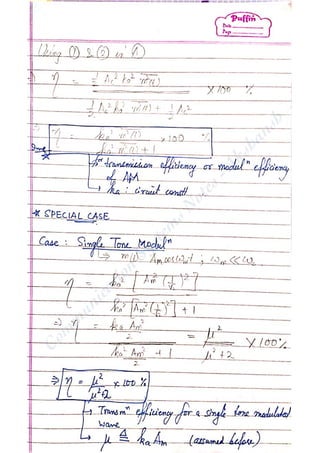 Puffin
Date
Page
Using ① & ② in ④
η = ½ Ac² ka² m²(t) / ½ Ac² ka² m²(t) + ½ Ac² × 100 %
η = ka² m²(t) / ka² m²(t) + 1 × 100 %
→ transmission efficiency or modulⁿ efficiency
of AM
→ ka : circuit const
* SPECIAL CASE
Case : Single Tone Modulⁿ
↳ m(t) = Am cos ωmt ; ωm << ωc
η = ka² [Am² (1/√2)²] / ka² [Am² (1/√2)²] + 1
⇒ η = ka² Am²/2 / ka² Am²/2 + 1 = μ² / μ² + 2 × 100%
⇒ η = μ² / μ²+2 × 100 %
→ Transmⁿ efficiency for a single tone modulated
wave
→ μ ≜ ka Am (assumed before)